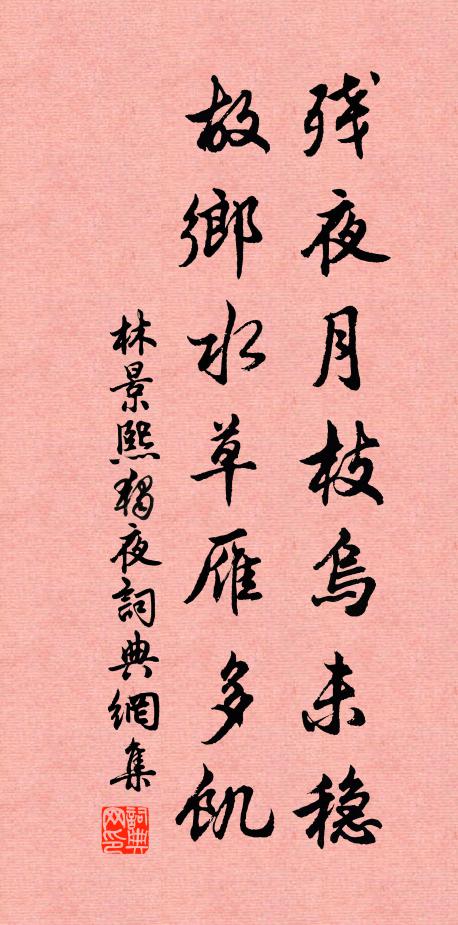 残夜月枝烏未穏
故鄉水草雁多飢
林景熙獨夜詞典網集
詞典网印